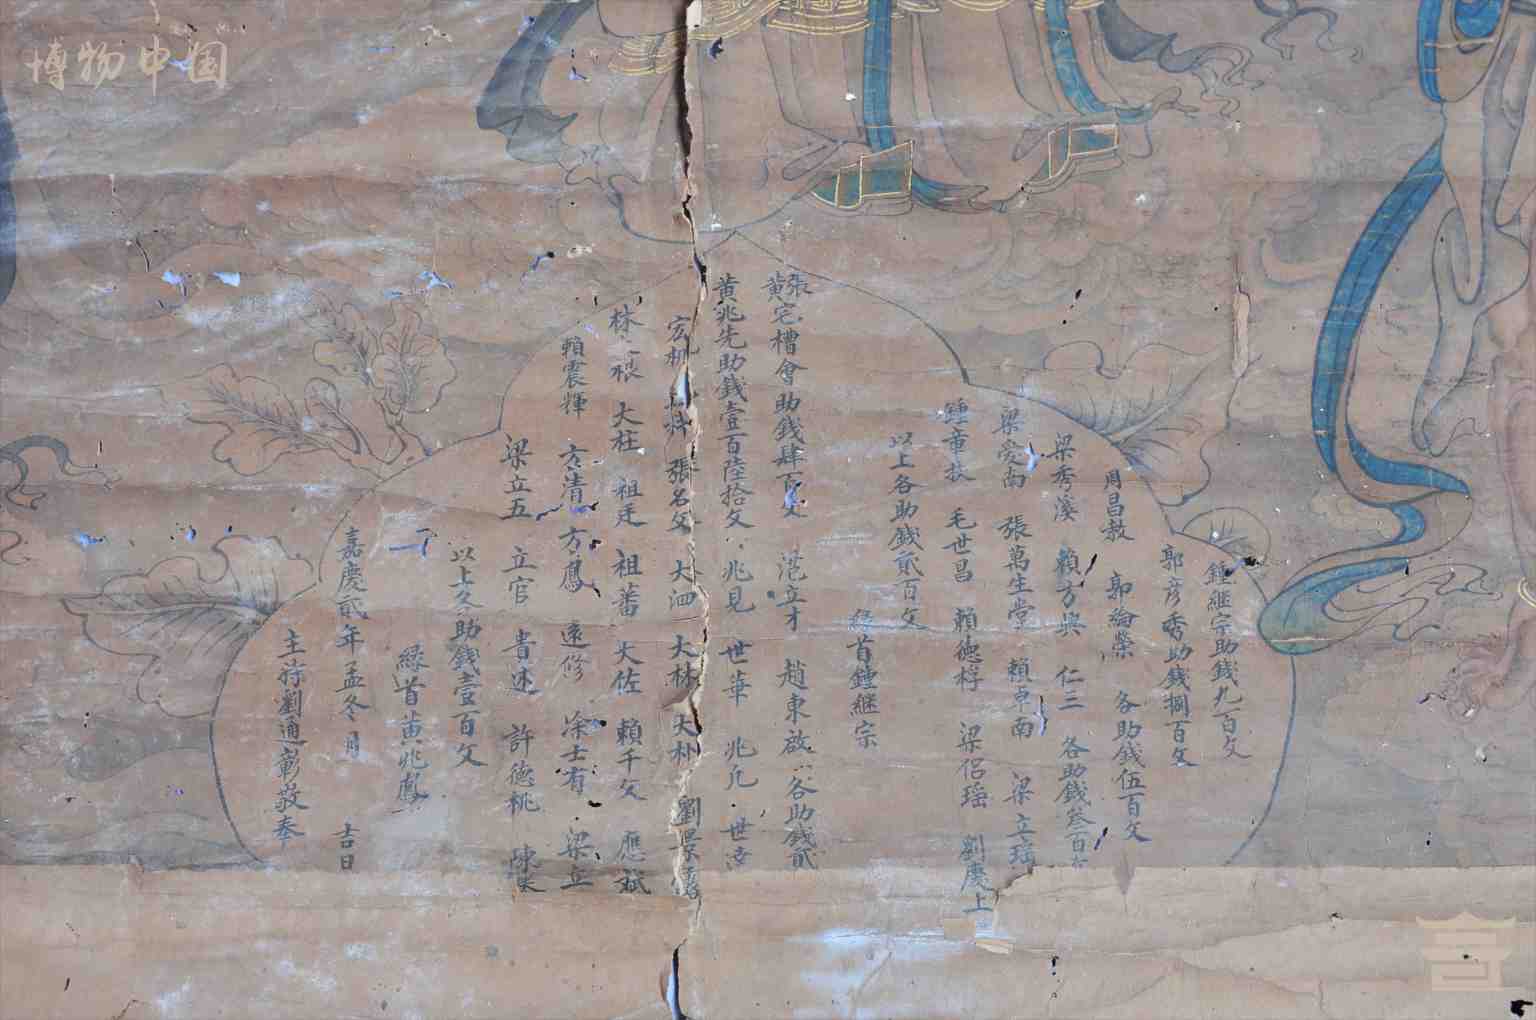 博物中国
鍾繼宗助錢九百文
郭彦秀助錢捌百文
周昌敖 郭綸榮 各助錢伍百文
梁秀溪 賴方興 仁三 各助錢叁百文
梁安南 張萬生堂 賴東南 梁立瑶
鍾童扶 毛世昌 賴德桴 梁侣瑶 劉慶上
以上各助錢貳百文
緣首鍾繼宗
張黄宅槽會助錢肆百文 范立才 趙東啟 各助錢貳
黄兆先助錢壹百陸拾文 兆見 世華 兆凡 世法
宏機 張名父 大泗 大林 大朴 劉景
林 根 大柱 祖廷 祖蕃 大佐 賴千文 應斌
賴震輝 方清 方鳳 遠修 涂士有 梁立
梁立五 立官 書述 許德桃 陳
以上各助錢壹百文
緣首黄兆鳳
嘉慶貳年孟冬月 吉日
主持劉通彰敬奉